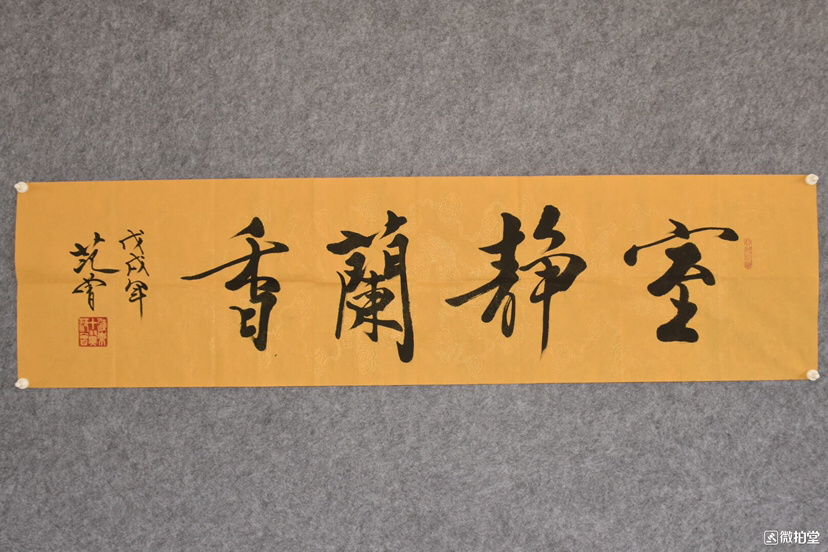 室静蘭香
戊戌年
范曾
微拍堂